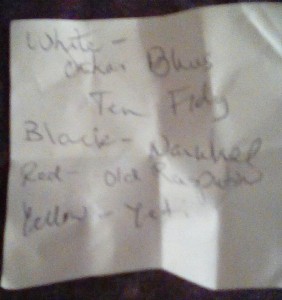 White -
oskar Blues
Ten Fidy
Black - Narwhal
Red - Old Rasputin
Yellow - Yeti